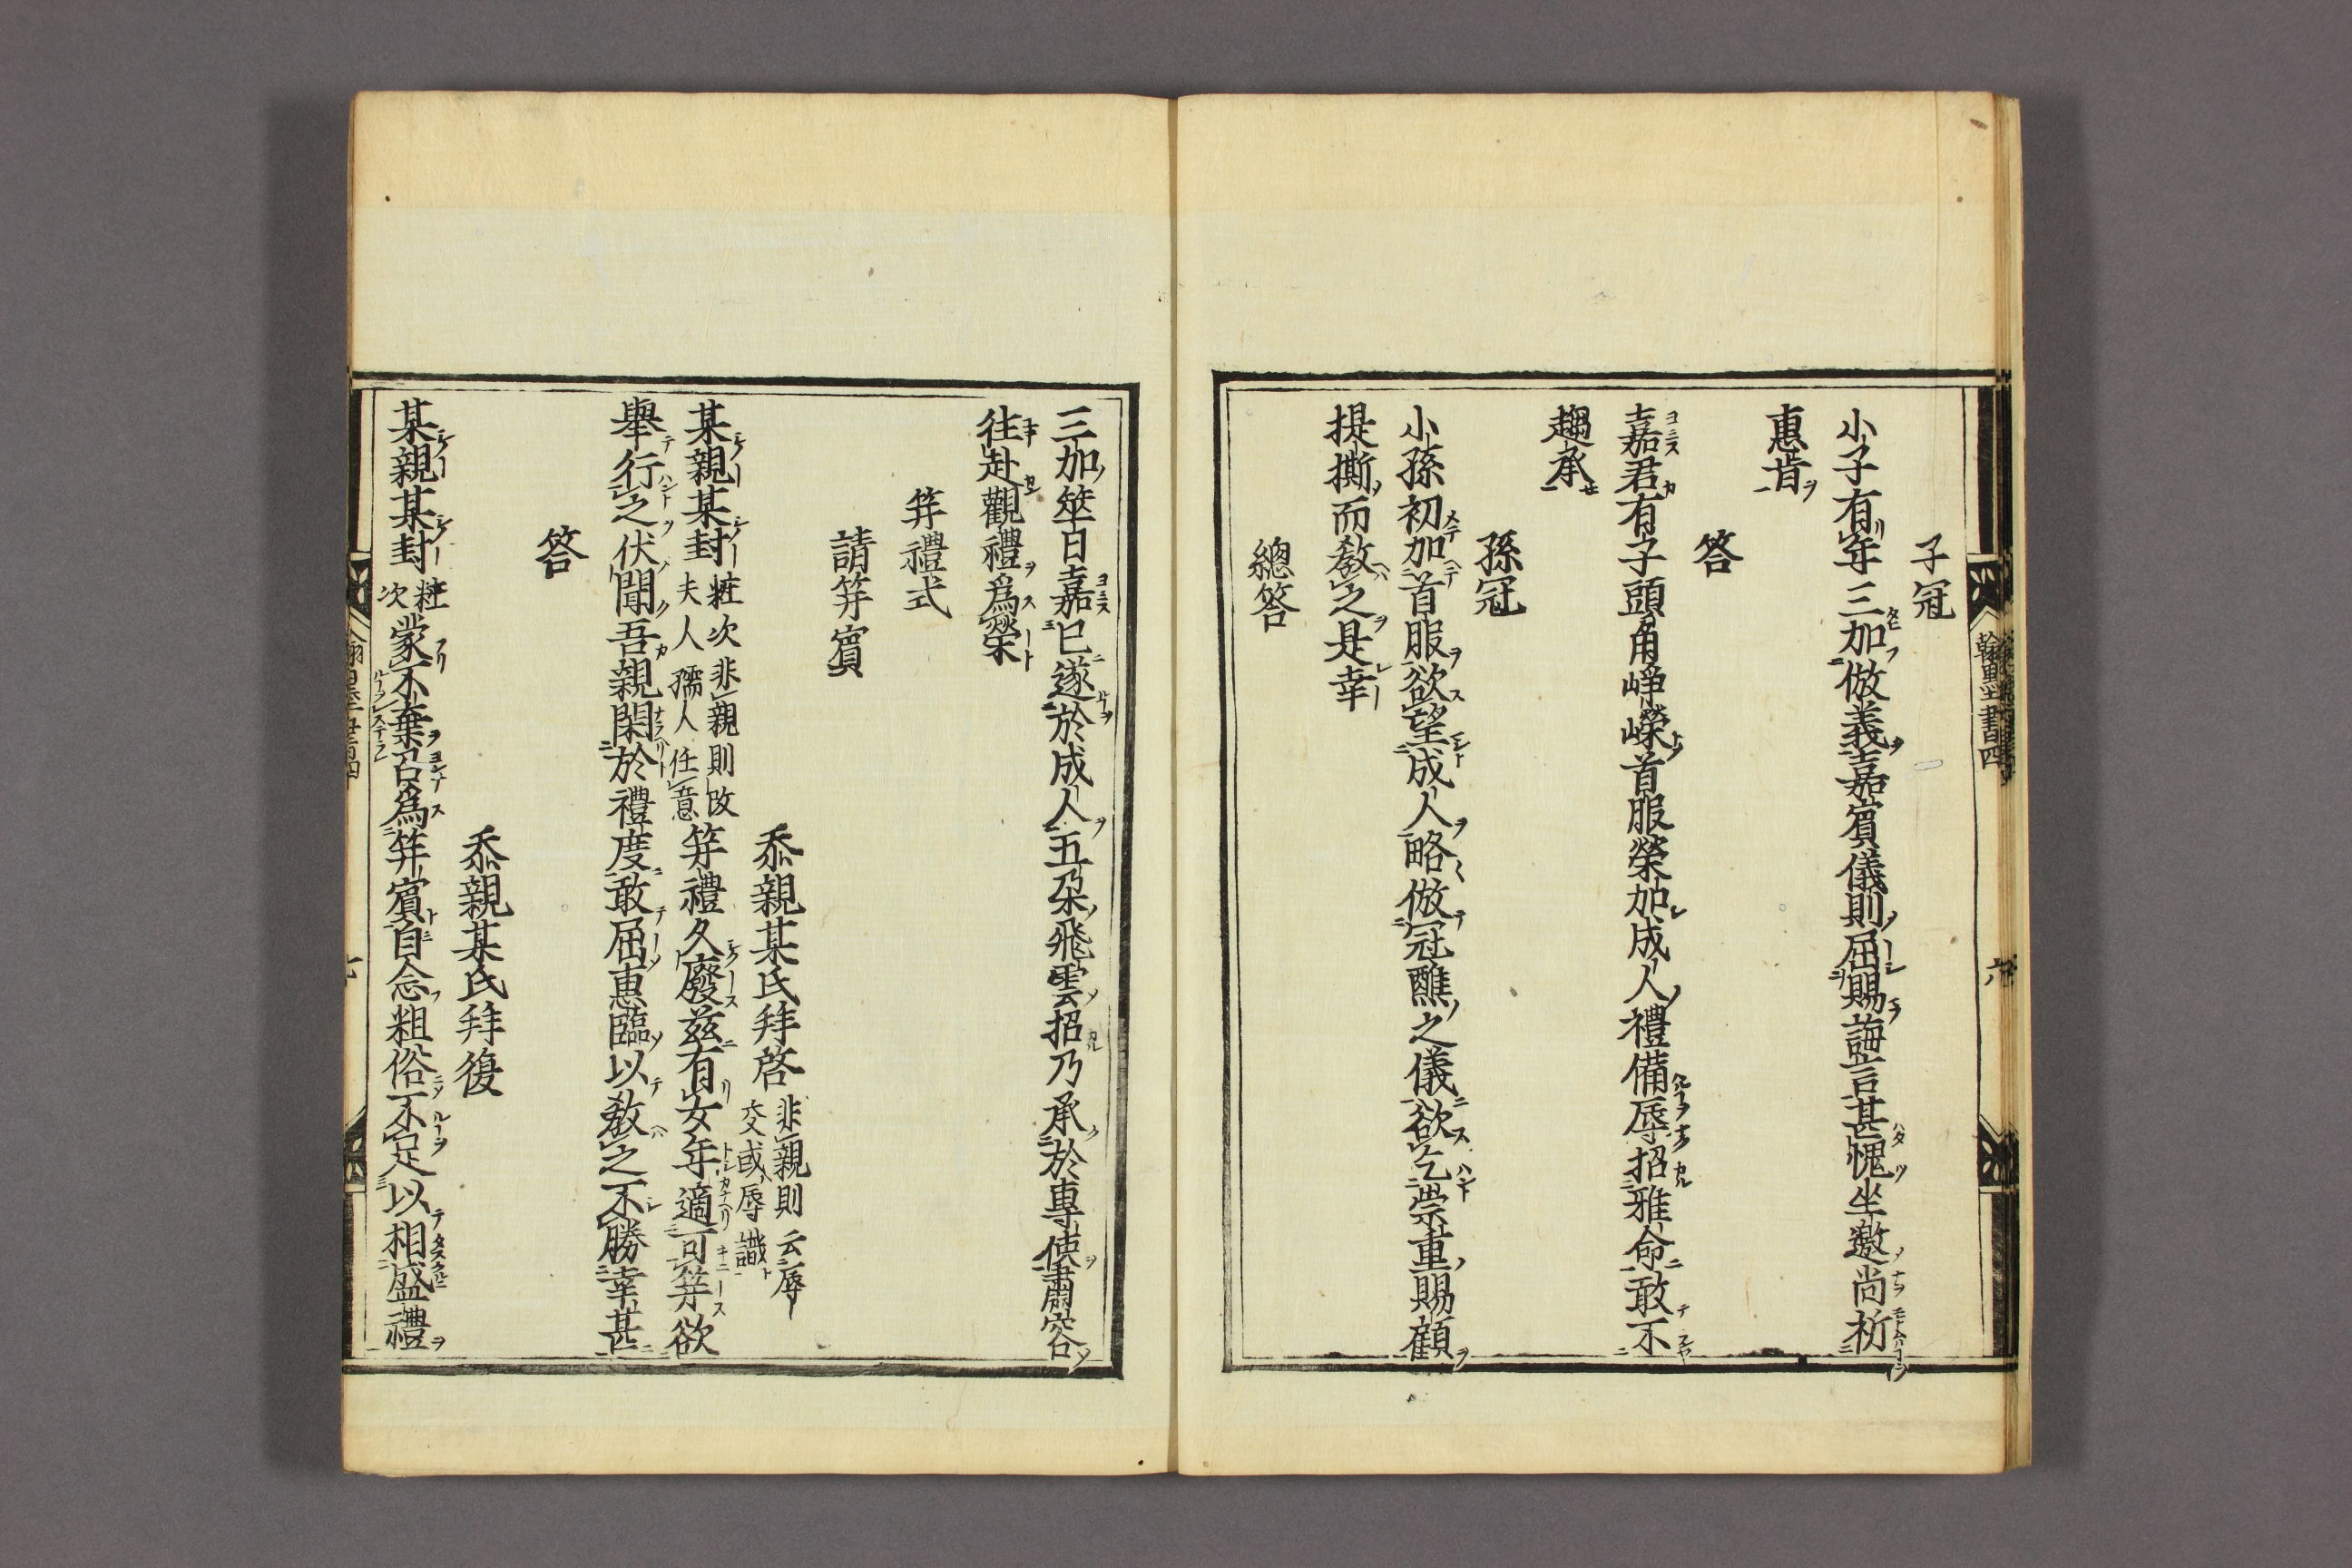 子冠
小子有年三加倣義嘉賓儀則屈賜誨言甚愧坐邀尚祈
惠肯
答
嘉君有子頭角崢嶸首服榮加成人禮備辱招雅命敢不
趨承
孫冠
小孫初加首服欲望成人略倣冠醮之儀欲乞崇重賜顧
提撕而敎之是幸
總答
三加筮日嘉已遂於成人五朶飛雲招乃承於專使肅容
往赴觀禮爲榮
筓禮式
請筓賓
忝親某氏拜啓 非親則云辱
交或辱識
某親某封 粧次非親則改
夫人孺人任意 筓禮久廢茲有女年適可筓欲
舉行之伏聞吾親閑於禮度敢屈惠臨以敎之不勝幸甚
答
忝親某氏拜復
某親某封 粧
次 蒙不棄召爲筓賓自念粗俗不足以相盛禮